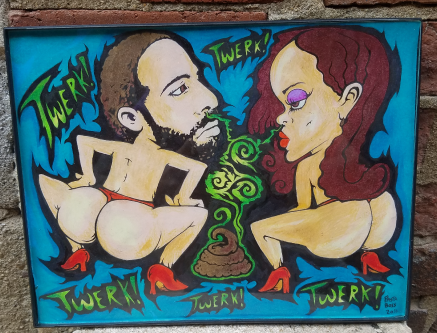 TWERK!
TWERK!
TWERK!
TWERK!
TWERK!